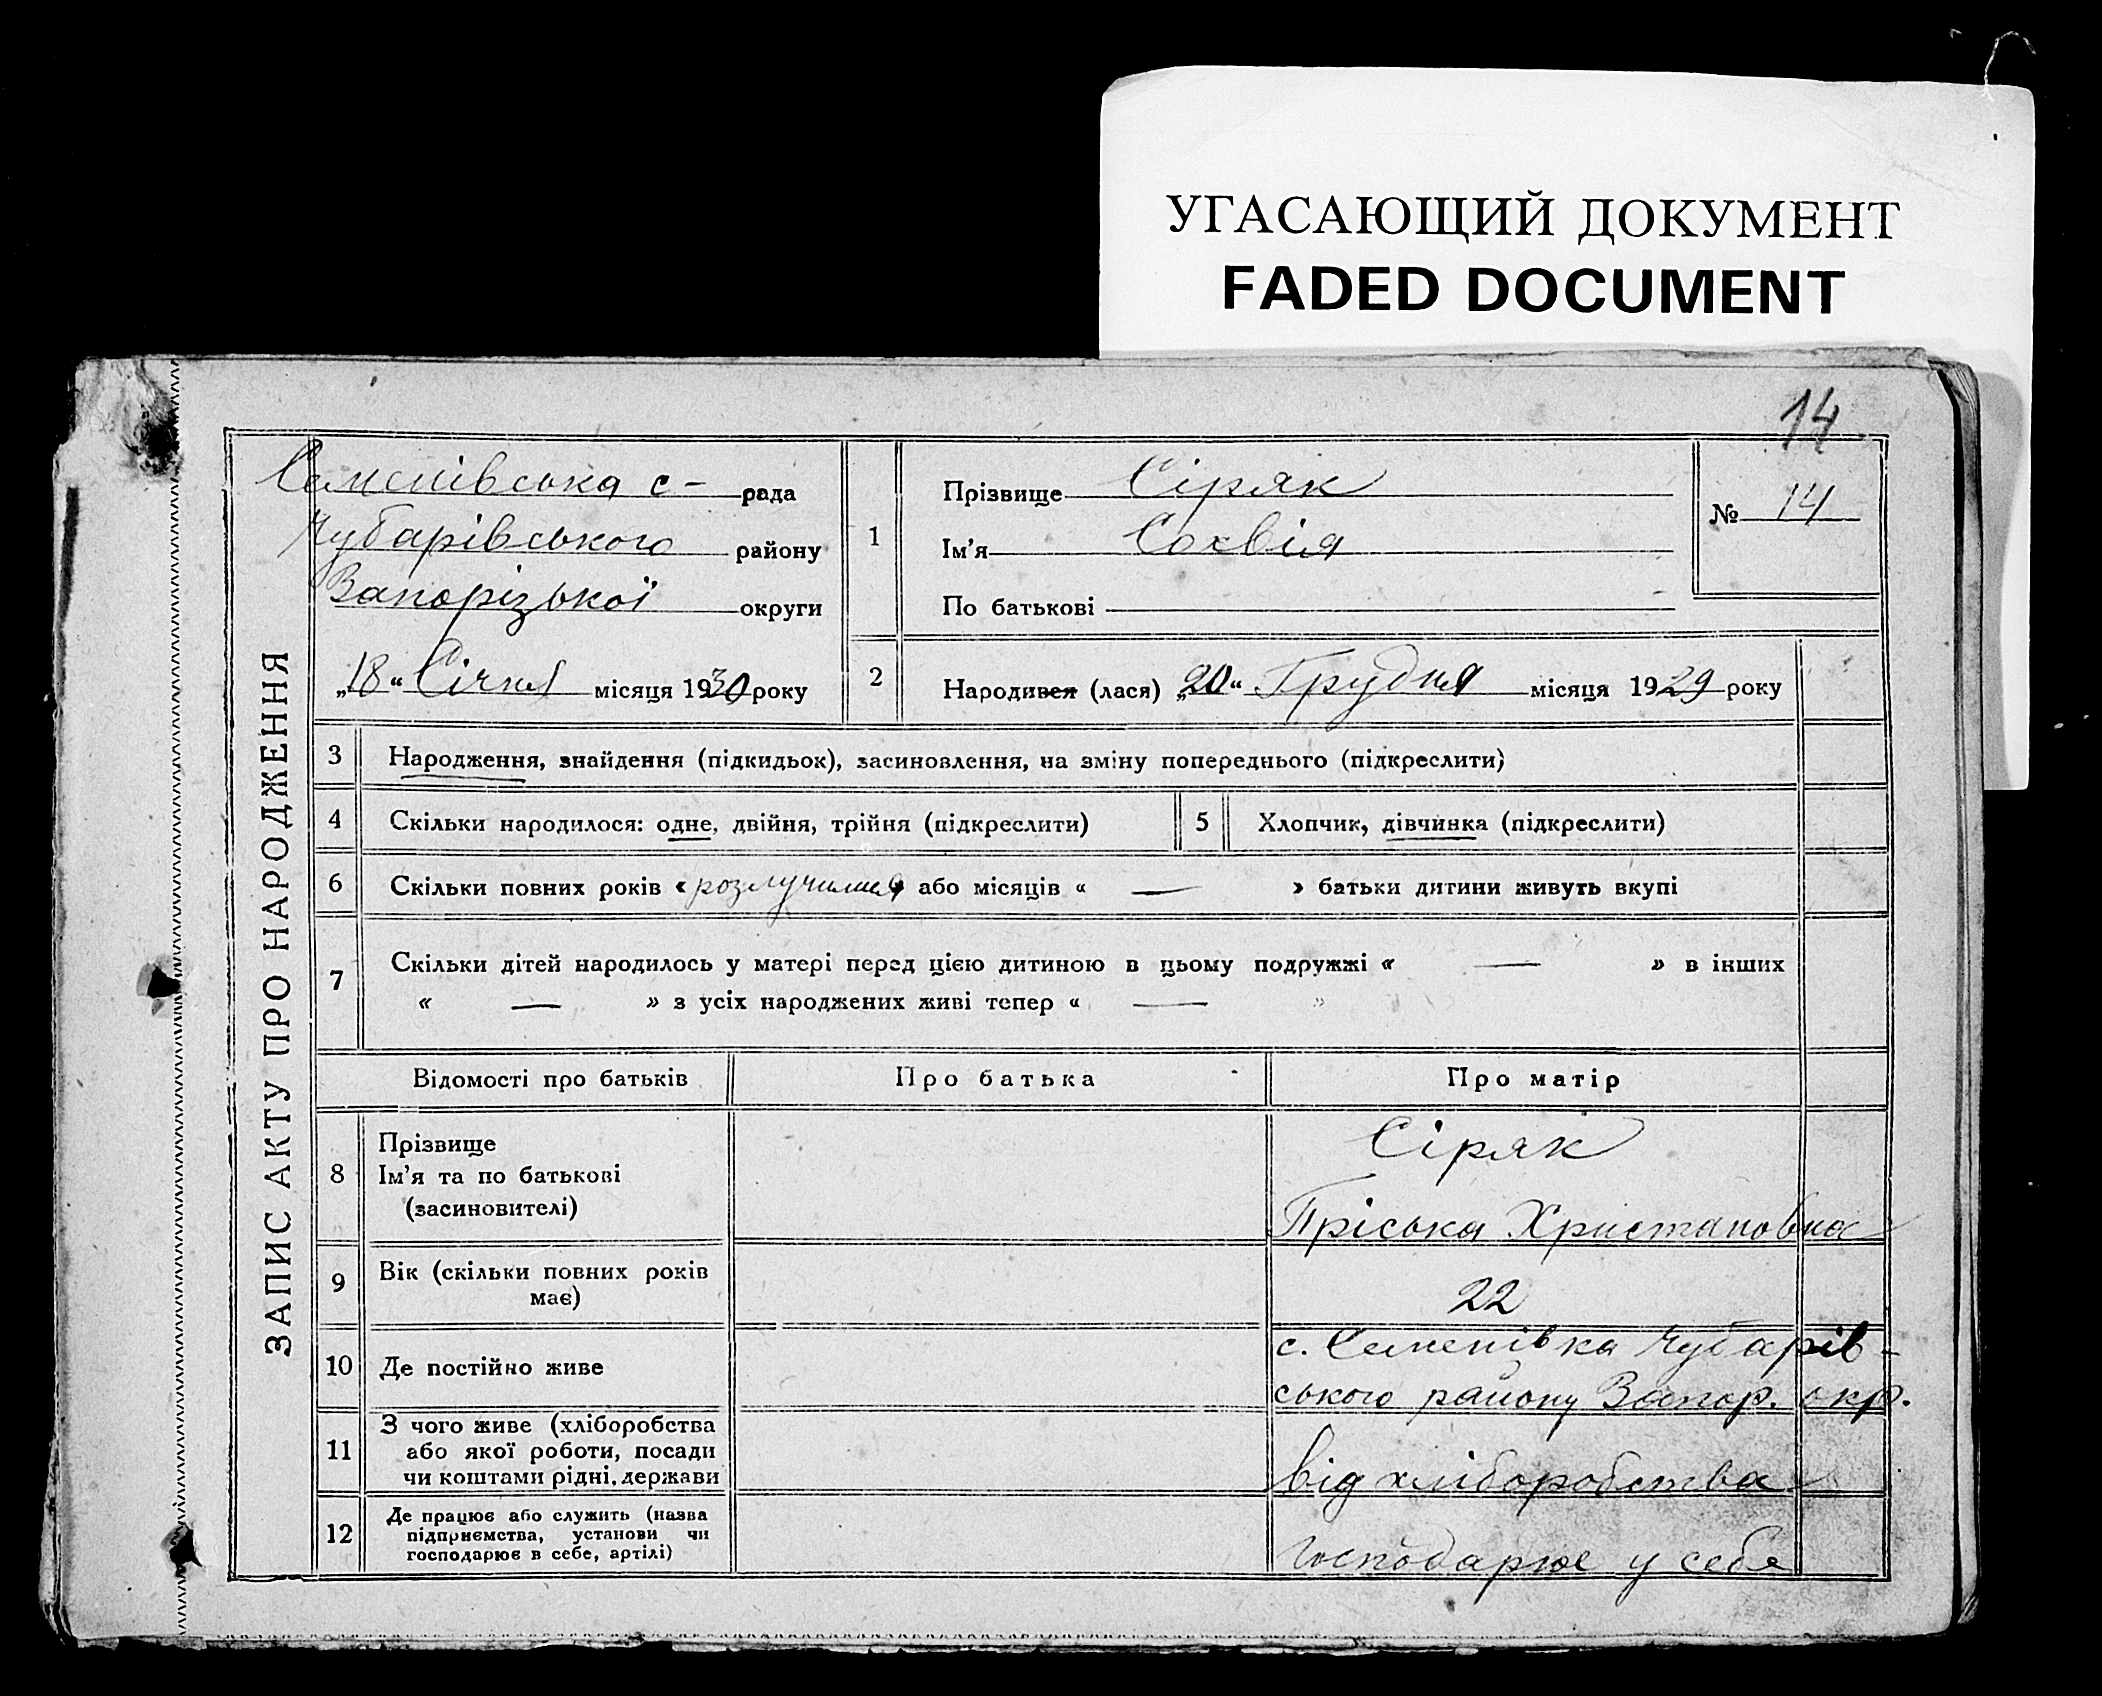 УГАСАЮЩИЙ ДОКУМЕНТ
FADED DOCUMENT
14
ЗАПИС АКТУ ПРО НАРОДЖЕННЯ
Семенівська с- рада
Чубарівського району
Запорізької округи
„18“ Січня місяця 1930 року
1
Прізвище Сіряк
Ім'я Сохвія
По батькові
№ 14
2 Народився (лася) „20“ Грудня місяця 1929 року
3 Народження, знайдення (підкидьок), засиновлення, на зміну попереднього (підкреслити)
4 Скільки народилося: одне, двійня, трійня (підкреслити) 5 Хлопчик, дівчинка (підкреслити)
6 Скільки повних років « розлучилися або місяців « — » батьки дитини живуть вкупі
7 Скільки дітей народилось у матері перед цією дитиною в цьому подружжі « — » в інших
« — » з усіх народжених живі тепер « — »
Відомості про батьків Про батька Про матір
8 Прізвище Сіряк
Ім'я та по батькові
(засиновителі) Пріська Христановна
9 Вік (скільки повних років
має) 22
10 Де постійно живе с. Семенівка Чубарів-
ського району Запор. окр.
11 З чого живе (хліборобства
або якої роботи, посади
чи коштами рідні, держави від хліборобства
12 Де працює або служить (назва
підприємства, установи чи
господарює в себе, артілі) господарює у себе